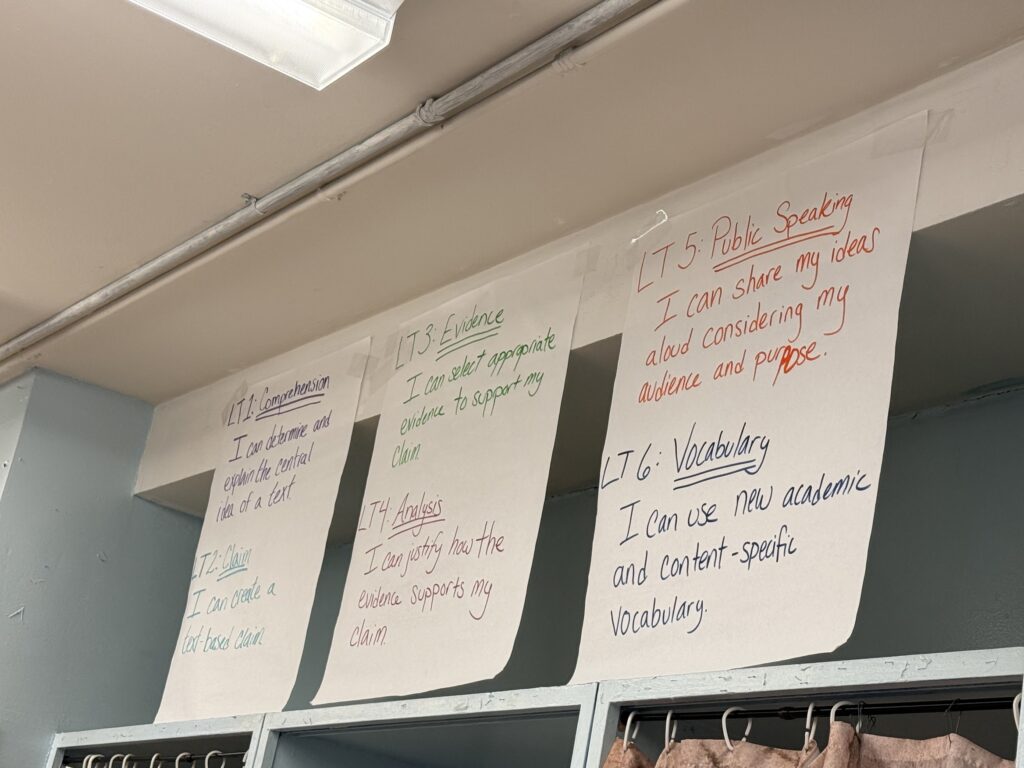 LT1: Comprehension
I can determine and
explain the central
idea of a text.
LT2: Claim
I can create a
text-based claim.
LT3: Evidence
I can select appropriate
evidence to support my
claim.
LT4: Analysis
I can justify how the
evidence supports my
claim.
LT5: Public Speaking
I can share my ideas
aloud considering my
audience and purpose.
LT6: Vocabulary
I can use new academic
and content-specific
vocabulary.